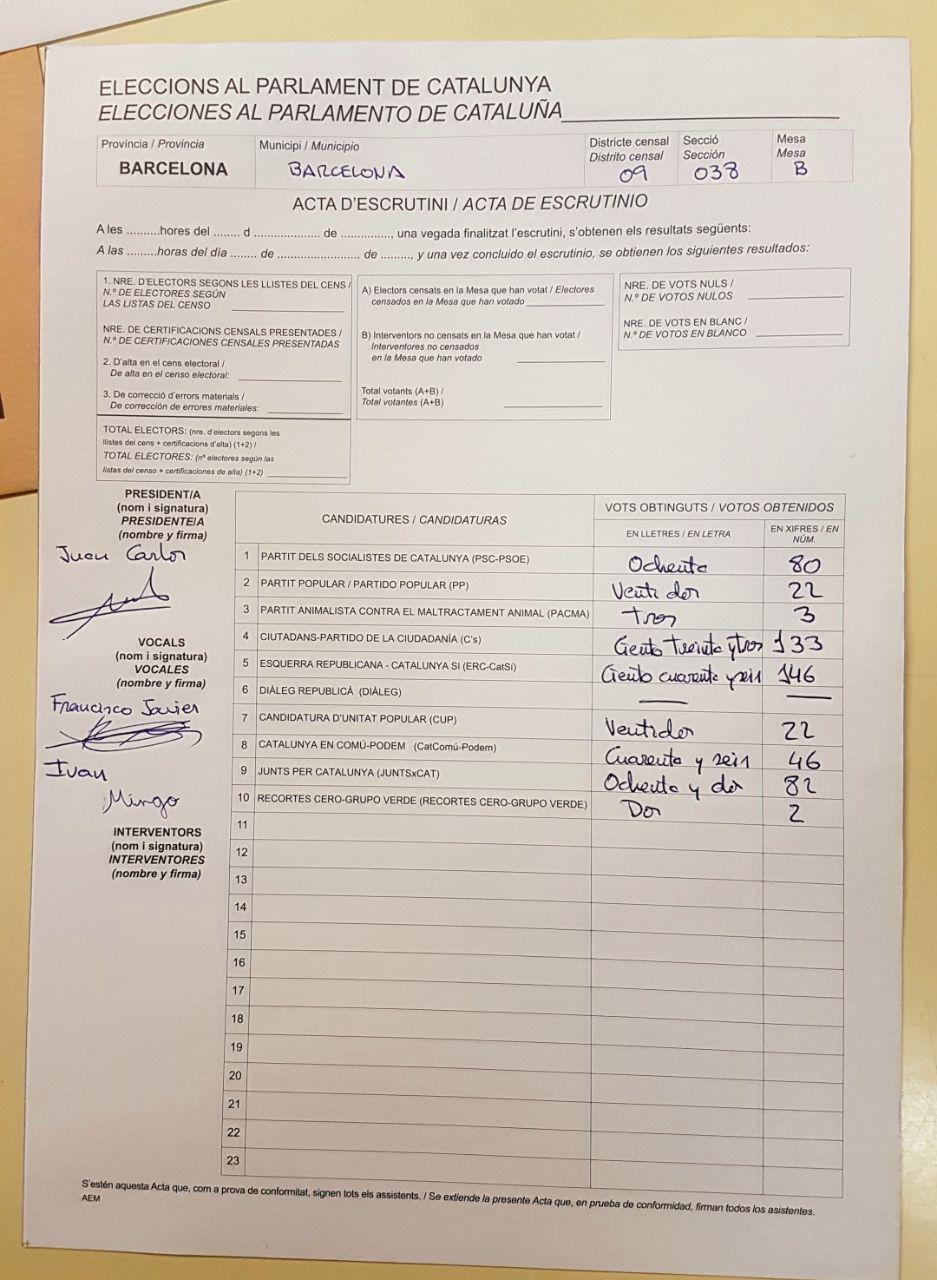 ELECCIONS AL PARLAMENT DE CATALUNYA
ELECCIONES AL PARLAMENTO DE CATALUÑA
Província / Provincia
BARCELONA
Municipi / Municipio
BARCELONA
Districte censal
Distrito censal
09
Secció
Sección
038
Mesa
Mesa
B
ACTA D'ESCRUTINI / ACTA DE ESCRUTINIO
A les ..........hores del ........ d .................... de ............, una vegada finalitzat l'escrutini, s'obtenen els resultats següents:
A las .........horas del dia ........ de ......................... de ........., y una vez concluido el escrutinio, se obtienen los siguientes resultados:
1. NRE. D'ELECTORS SEGONS LES LLISTES DEL CENS /
N.º DE ELECTORES SEGÚN
LAS LISTAS DEL CENSO
NRE. DE CERTIFICACIONS CENSALS PRESENTADES /
N.º DE CERTIFICACIONES CENSALES PRESENTADAS
2. D'alta en el cens electoral /
De alta en el censo electoral:
3. De correcció d'errors materials /
De corrección de errores materiales:
TOTAL ELECTORS: (nre. d'electors segons les
llistes del cens + certificacions d'alta) (1+2) /
TOTAL ELECTORES: (nº electores según las
listas del censo + certificaciones de alta) (1+2)
A) Electors censats en la Mesa que han votat / Electores
censados en la Mesa que han votado
B) Interventors no censats en la Mesa que han votat /
Interventores no censados
en la Mesa que han votado
Total votants (A+B) /
Total votantes (A+B)
NRE. DE VOTS NULS /
N.º DE VOTOS NULOS
NRE. DE VOTS EN BLANC /
N.º DE VOTOS EN BLANCO
PRESIDENT/A
(nom i signatura)
PRESIDENTE/A
(nombre y firma)
Juan Carlos
VOCALS
(nom i signatura)
VOCALES
(nombre y firma)
Francisco Javier
Ivan
Mingo
INTERVENTORS
(nom i signatura)
INTERVENTORES
(nombre y firma)
CANDIDATURES / CANDIDATURAS
VOTS OBTINGUTS / VOTOS OBTENIDOS
EN LLETRES / EN LETRA
EN XIFRES / EN
NÚM.
1 PARTIT DELS SOCIALISTES DE CATALUNYA (PSC-PSOE) Ochenta 80
2 PARTIT POPULAR / PARTIDO POPULAR (PP) Venti dos 22
3 PARTIT ANIMALISTA CONTRA EL MALTRACTAMENT ANIMAL (PACMA) Tres 3
4 CIUTADANS-PARTIDO DE LA CIUDADANÍA (C's) Ciento treinta y tres 133
5 ESQUERRA REPUBLICANA - CATALUNYA SI (ERC-CatSí) Ciento cuarenta y seis 146
6 DIÀLEG REPUBLICÀ (DIÀLEG) — —
7 CANDIDATURA D'UNITAT POPULAR (CUP) Ventidos 22
8 CATALUNYA EN COMÚ-PODEM (CatComú-Podem) Cuarenta y seis 46
9 JUNTS PER CATALUNYA (JUNTSxCAT) Ochenta y dos 82
10 RECORTES CERO-GRUPO VERDE (RECORTES CERO-GRUPO VERDE) Dos 2
11
12
13
14
15
16
17
18
19
20
21
22
23
S'estén aquesta Acta que, com a prova de conformitat, signen tots els assistents. / Se extiende la presente Acta que, en prueba de conformidad, firman todos los asistentes.
AEM